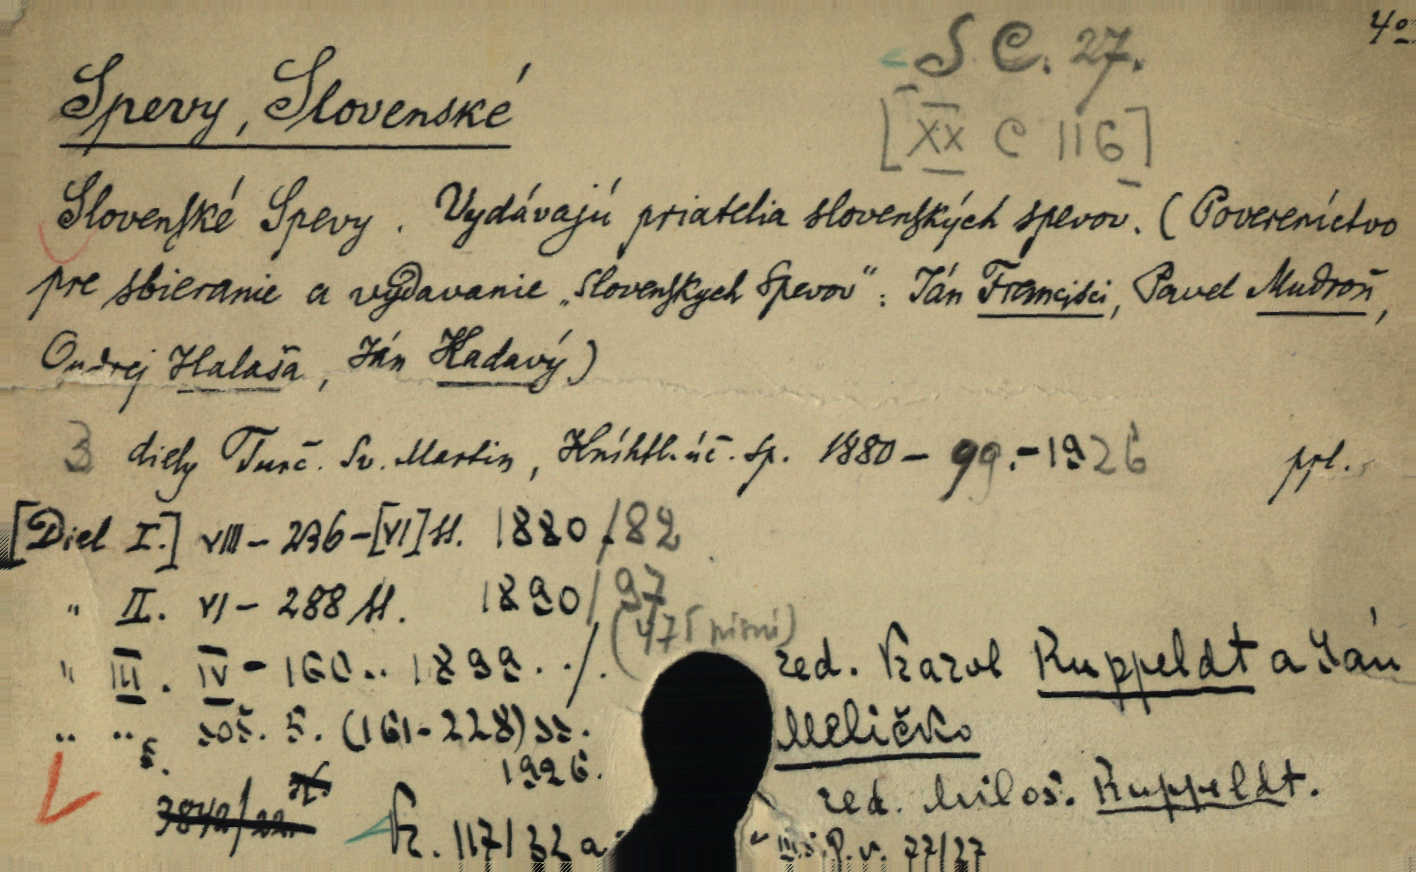 4o
S C. 27.
Spevy, Slovenské
[XX C 116]
Slovenské Spevy. Vydávajú priatelia slovenských spevov. (Povereníctvo
pre sbieranie a vydavanie „Slovenskych Spevov": Ján Francisci, Pavel Mudroň,
Ondrej Halaša, Ján Kadavý)
3 diely Turč. Sv. Martin, Kníhtl. úč. sp. 1880 – 99. – 1926 ppl.
[Diel I.] VIII – 236 – [VI] ss. 1880/82
" II. VI – 288 ss. 1890/97
(475 piesní)
" III. IV – 160 .. 1899 . ./. red. Karol Ruppeldt a Ján
" " soš. 5. (161-228) ss. Meličko
5. 1926. red. Miloš. Ruppeldt.
K. 117/32 a P. v. 77/27